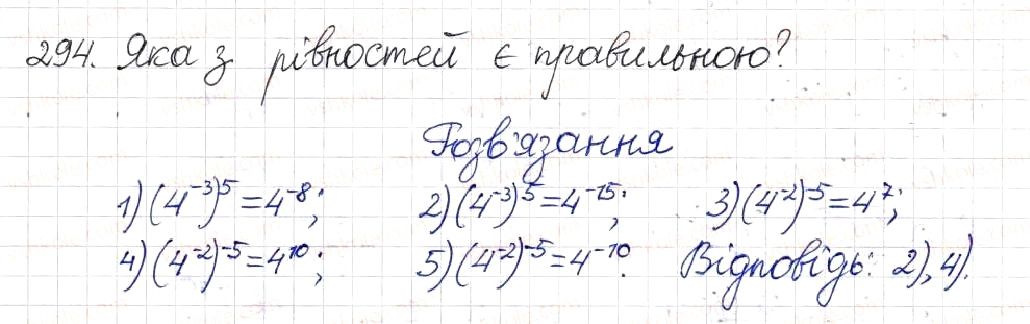 294. Яка з рівностей є правильною?
Розв'язання
1) (4⁻³)⁵ = 4⁻⁸; 2) (4⁻³)⁵ = 4⁻¹⁵; 3) (4⁻²)⁻⁵ = 4⁷;
4) (4⁻²)⁻⁵ = 4¹⁰; 5) (4⁻²)⁻⁵ = 4⁻¹⁰. Відповідь: 2), 4).